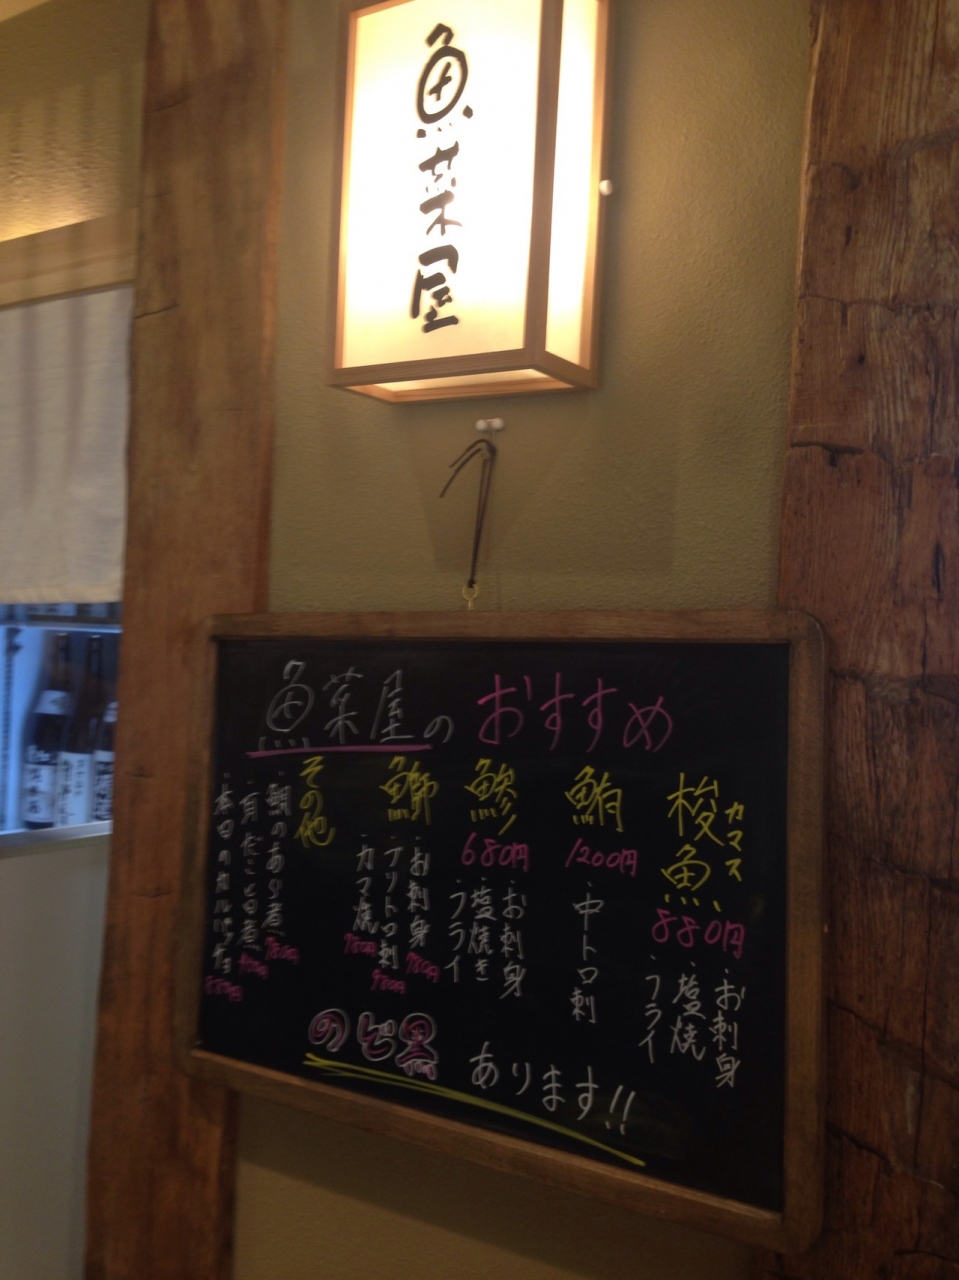 魚菜屋
魚菜屋のおすすめ
カマス
梭魚
880円
・お刺身
・塩焼
・フライ
鮪
1200円
・中トロ刺
鯵
680円
・お刺身
・塩焼き
・フライ
鰤
・お刺身
980円
・ブリトロ刺
980円
・カマ焼
780円
その他
・鯛のあら煮
780円
・真だこと日煮
・本日のカルパッチョ
880円
のど黒
あります!!